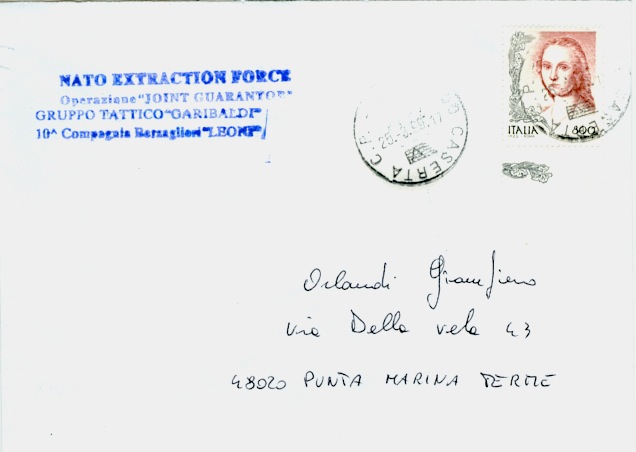 NATO EXTRACTION FORCE
Operazione "JOINT GUARANTOR"
GRUPPO TATTICO "GARIBALDI"
10^ Compagnia Bersaglieri "LEONI"
CASERTA C.P.
ITALIA 800
Orlandi Gianpiero
Via Della vela 43
48020 PUNTA MARINA TERME